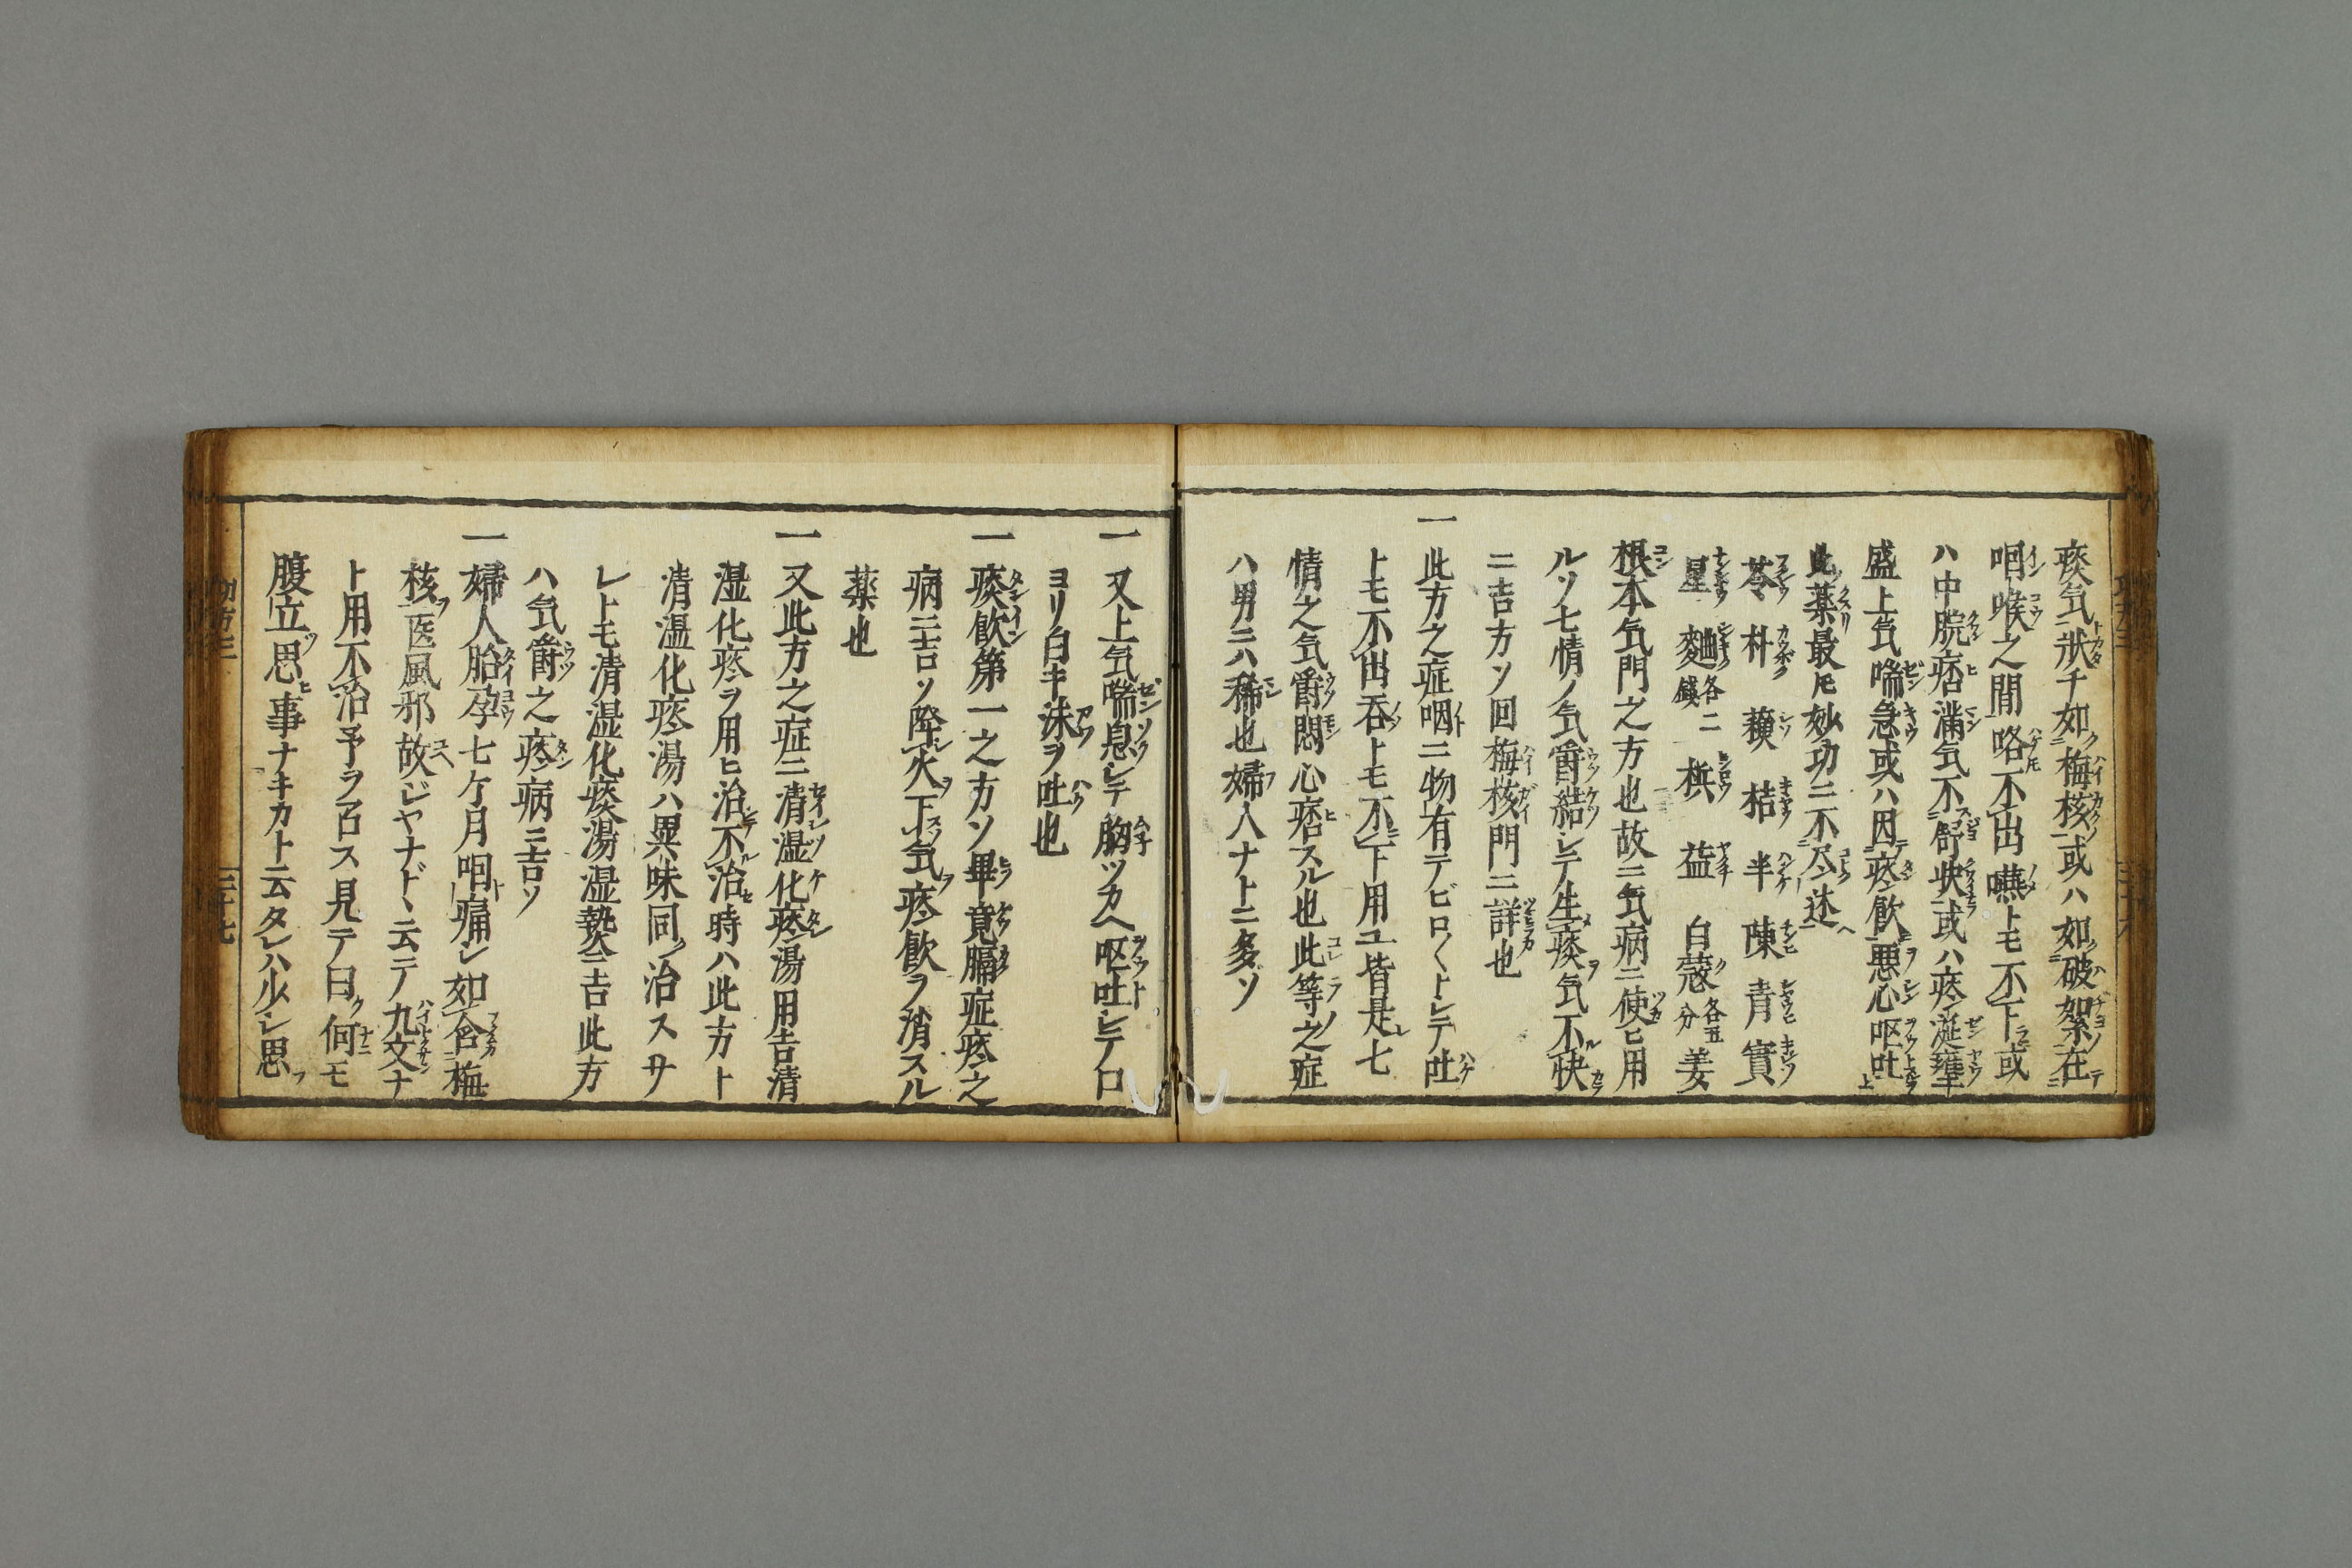 痰気ニ状チ如ク梅核ノ或ハ如ク破絮ノ在テ
咽喉之間ニ咯トモ不出嚥トモ不下或
ハ中脘痞満気不舒快或ハ痰涎壅
盛上気喘急或ハ因テ痰飲ニ悪心嘔吐
此薬最モ妙功ニ不尽述
苓 朴 蘓 桔 半 陳 青 實
星 麯各二錢 梹 益 白蔻各五分 姜
根本気門之方也故ニ気病ニ使ヒ用
ルソ七情ノ気欝結シテ生痰ヲ気不快
ニ吉方ソ回梅核門ニ詳也
一此方之症咽ニ物有テビロ〱トシテ吐
トモ不出呑トモ不下用ユ皆是レ七
情之気欝悶心痞スル也此等ノ之症
ハ男ニハ稀也婦人ナトニ多ソ
一又上気喘息シテ胸ツカヘ嘔吐シテ口
ヨリ白キ沫ヲ吐也
一痰飲第一之方ソ畢竟膈症痰之
病ニ吉ソ降火ヲ下気ヲ痰飲ヲ消スル
薬也
一又此方之症ニ清湿化痰湯用吉清
湿化痰ヲ用ヒ治不治時ハ此方ト
清温化痰湯ハ異味同ク治スサ
レトモ清湿化痰湯湿熱ニ吉此方
ハ気欝之痰病ニ吉ソ
一婦人胎孕七ケ月咽痛レ如含梅
核ヲ医風邪故ジヤナド云テ九文ナ
ト用不治予ヲ召ス見テ曰ク何モ
腹立思事ナキカト云タレハ少シ思フ